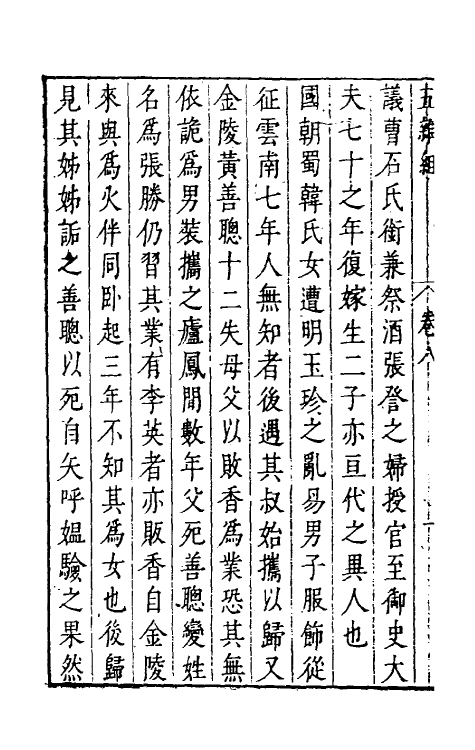 五雜組 卷八
議曹石氏銜兼祭酒張詧之婦授官至御史大
夫七十之年復嫁生二子亦亘代之異人也
國朝蜀韓氏女遭明玉珍之亂易男子服飾從
征雲南七年人無知者後遇其叔始攜以歸又
金陵黃善聰十二失母父以敗香爲業恐其無
依詭爲男裝攜之廬鳳間數年父死善聰變姓
名爲張勝仍習其業有李英者亦販香自金陵
來與爲火伴同卧起三年不知其爲女也後歸
見其姊姊詬之善聰以死自矢呼媪驗之果然